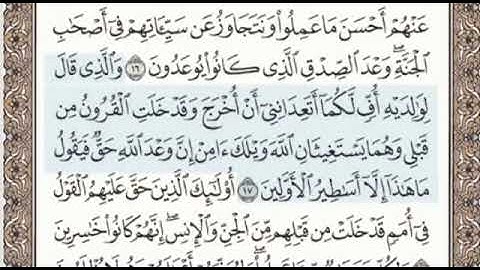 عَنْهُمْ أَحْسَنَ مَا عَمِلُوا۟ وَنَتَجَاوَزُ عَن سَيِّـَٔاتِهِمْ فِىٓ أَصْحَـٰبِ
ٱلْجَنَّةِ ۖ وَعْدَ ٱلصِّدْقِ ٱلَّذِى كَانُوا۟ يُوعَدُونَ ١٦ وَٱلَّذِى قَالَ
لِوَٰلِدَيْهِ أُفٍّ لَّكُمَآ أَتَعِدَانِنِىٓ أَنْ أُخْرَجَ وَقَدْ خَلَتِ ٱلْقُرُونُ مِن
قَبْلِى وَهُمَا يَسْتَغِيثَانِ ٱللَّهَ وَيْلَكَ ءَامِنْ إِنَّ وَعْدَ ٱللَّهِ حَقٌّ فَيَقُولُ
مَا هَـٰذَآ إِلَّآ أَسَـٰطِيرُ ٱلْأَوَّلِينَ ١٧ أُو۟لَـٰٓئِكَ ٱلَّذِينَ حَقَّ عَلَيْهِمُ ٱلْقَوْلُ
فِىٓ أُمَمٍ قَدْ خَلَتْ مِن قَبْلِهِم مِّنَ ٱلْجِنِّ وَٱلْإِنسِ ۖ إِنَّهُمْ كَانُوا۟ خَـٰسِرِينَ